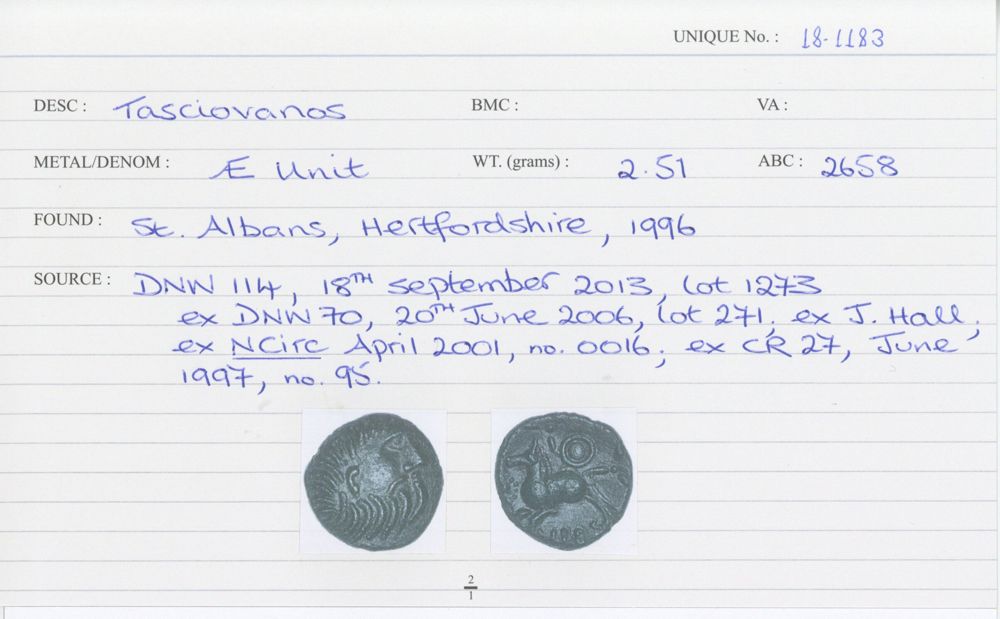 UNIQUE No. : 18-1183
DESC : Tasciovanos BMC : VA :
METAL/DENOM : Æ Unit WT. (grams) : 2.51 ABC : 2658
FOUND : St. Albans, Hertfordshire, 1996
SOURCE : DNW 114, 18TH September 2013, lot 1273
ex DNW 70, 20TH June 2006, lot 271; ex J. Hall;
ex NCirc April 2001, no. 0016; ex CR 27, June
1997, no. 95.
2
1